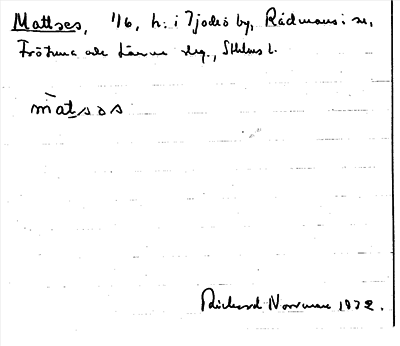 Mattses, 1/16, h. i Tjockö by, Rådmansö sn,
Frötuna och Länna skg., Sthlms l.
màtsəs
Rickard Norrman 1932.